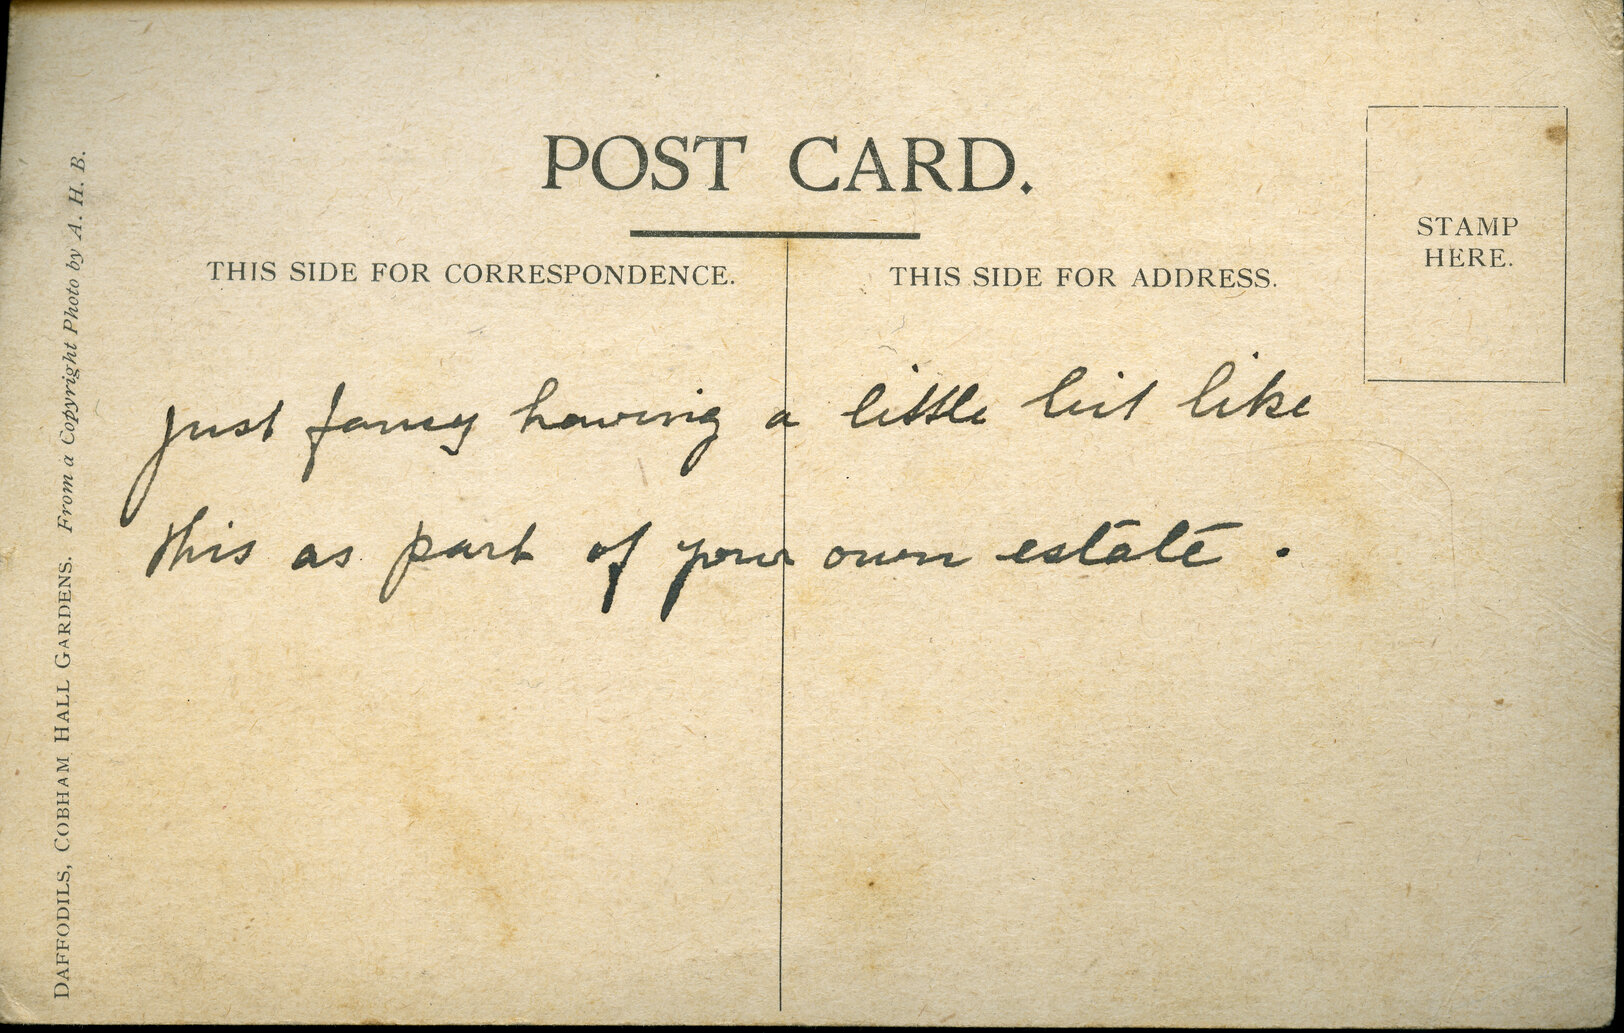 POST CARD.
THIS SIDE FOR CORRESPONDENCE.
THIS SIDE FOR ADDRESS.
STAMP
HERE.
just fancy having a little bit like
this as part of your own estate.
DAFFODILS, COBHAM HALL GARDENS. From a Copyright Photo by A. H. B.